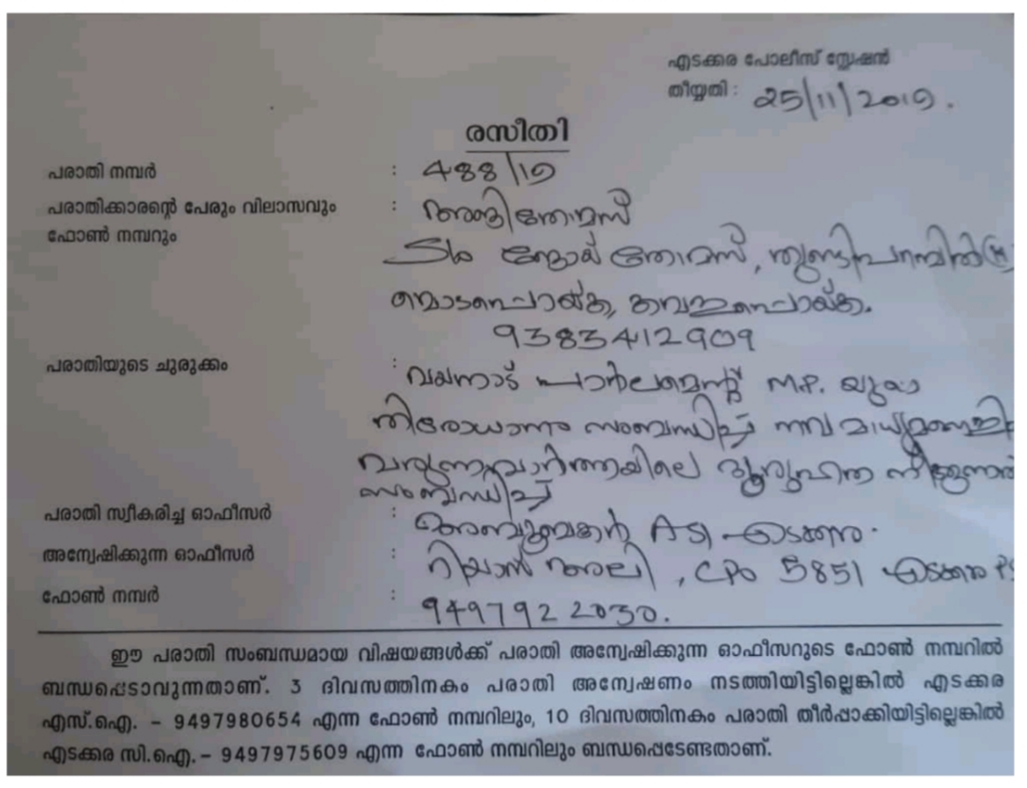 എടക്കര പോലീസ് സ്റ്റേഷൻ
തീയ്യതി : 25/11/2019.
രസീതി
പരാതി നമ്പർ : 488/19
പരാതിക്കാരന്റെ പേരും വിലാസവും : തോമസ്
ഫോൺ നമ്പറും
S/o ജോയ് തോമസ്,
93834 12909
പരാതിയുടെ ചുരുക്കം : വയനാട് പാർലമെന്റ് M.P. യുടെ
തിരോധാനം സംബന്ധിച്ച് നവ
വരുന്ന വാർത്തയിലെ ദുരൂഹത
സംബന്ധിച്ച്
പരാതി സ്വീകരിച്ച ഓഫീസർ : അബൂബക്കർ ASI എടക്കര.
അന്വേഷിക്കുന്ന ഓഫീസർ : അലി, CPO 5851 എടക്കര PS
ഫോൺ നമ്പർ : 949792 2030.
ഈ പരാതി സംബന്ധമായ വിഷയങ്ങൾക്ക് പരാതി അന്വേഷിക്കുന്ന ഓഫീസറുടെ ഫോൺ നമ്പറിൽ
ബന്ധപ്പെടാവുന്നതാണ്. 3 ദിവസത്തിനകം പരാതി അന്വേഷണം നടത്തിയിട്ടില്ലെങ്കിൽ എടക്കര
എസ്.ഐ. – 9497980654 എന്ന ഫോൺ നമ്പറിലും, 10 ദിവസത്തിനകം പരാതി തീർപ്പാക്കിയിട്ടില്ലെങ്കിൽ
എടക്കര സി.ഐ. – 9497975609 എന്ന ഫോൺ നമ്പറിലും ബന്ധപ്പെടേണ്ടതാണ്.